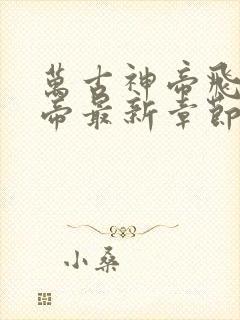 萬古神帝飛
帝最新章節
小桑